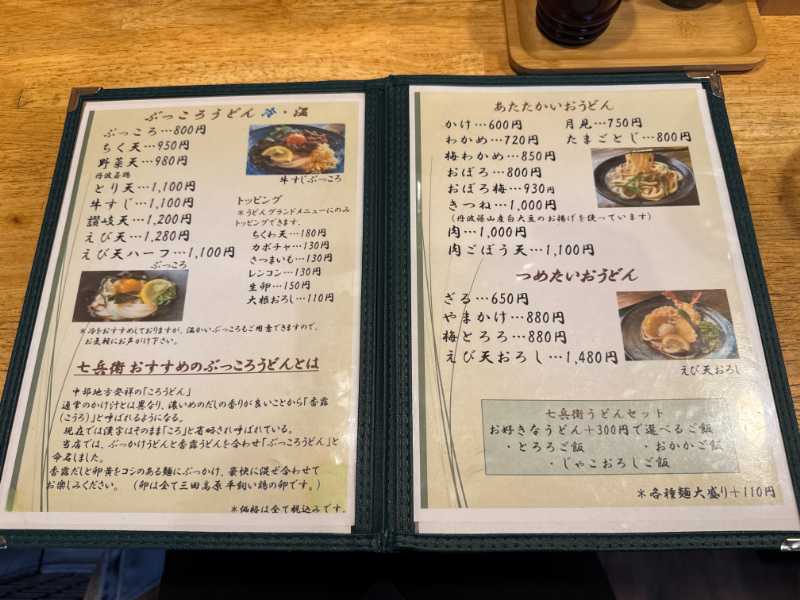 ぶっころうどん 冷・温
ぶっころ…800円
ちく天…950円
野菜天…980円
丹波若鶏
とり天…1,100円
牛すじ…1,100円
讃岐天…1,200円
えび天…1,280円
えび天ハーフ…1,100円
ぶっころ
牛すじぶっころ
トッピング
*うどんグランドメニューにのみ
トッピングできます。
ちくわ天…180円
カボチャ…130円
さつまいも…130円
レンコン…130円
生卵…150円
大根おろし…110円
*冷をおすすめしておりますが、温かいぶっころもご用意できますので、
お気軽にお声がけ下さい。
七兵衛おすすめのぶっころうどんとは
中部地方発祥の「ころうどん」
通常のかけ汁とは異なり、濃いめのだしの香りが良いことから「香露
(こうろ)」と呼ばれるようになる。
現在では漢字はそのまま「ころ」と省略され呼ばれている。
当店では、ぶっかけうどんと香露うどんを合わせ「ぶっころうどん」と
命名しました。
香露だしと卵黄をコシのある麺にぶっかけ、豪快に混ぜ合わせて
お楽しみください。 (卵は全て三田高原平飼い鶏の卵です。)
*価格は全て税込みです。
あたたかいおうどん
かけ…600円 月見…750円
わかめ…720円 たまごとじ…800円
梅わかめ…850円
おぼろ…800円
おぼろ梅…930円
きつね…1,000円
(丹波篠山産白大豆のお揚げを使っています)
肉…1,000円
肉ごぼう天…1,100円
つめたいおうどん
ざる…650円
やまかけ…880円
梅とろろ…880円
えび天おろし…1,480円
えび天おろし
七兵衛うどんセット
お好きなうどん+300円で選べるご飯
・とろろご飯 ・おかかご飯
・じゃこおろしご飯
*各種麺大盛り+110円